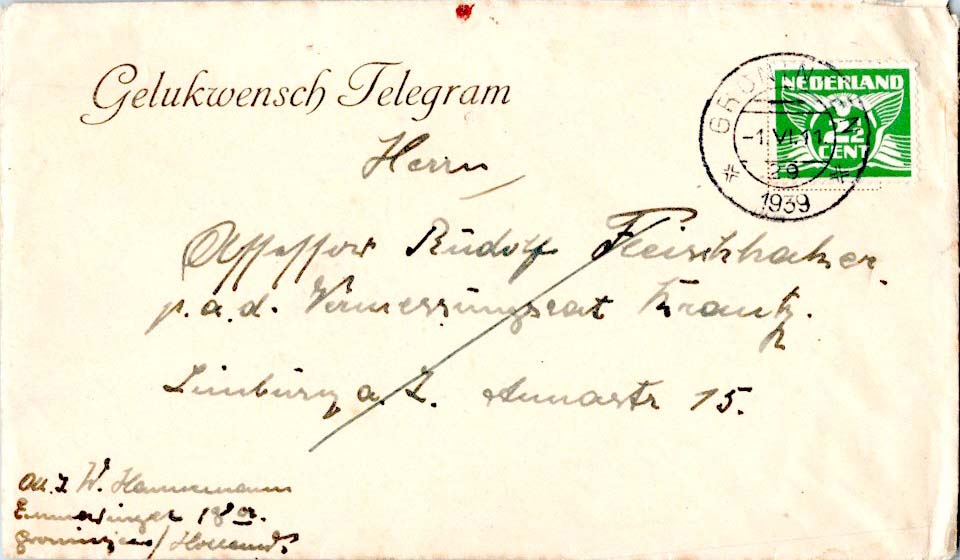 Gelukwensch Telegram
NEDERLAND
2½
CENT
GRONINGEN
-1.VI.11
39
1939
Herrn
Assessor Rudolf Fleischhaker.
p.a.d. Vermessungsrat Krantz.
Limburg a. L. Annastr 15.
W. Hannemann
Groningen / Holland